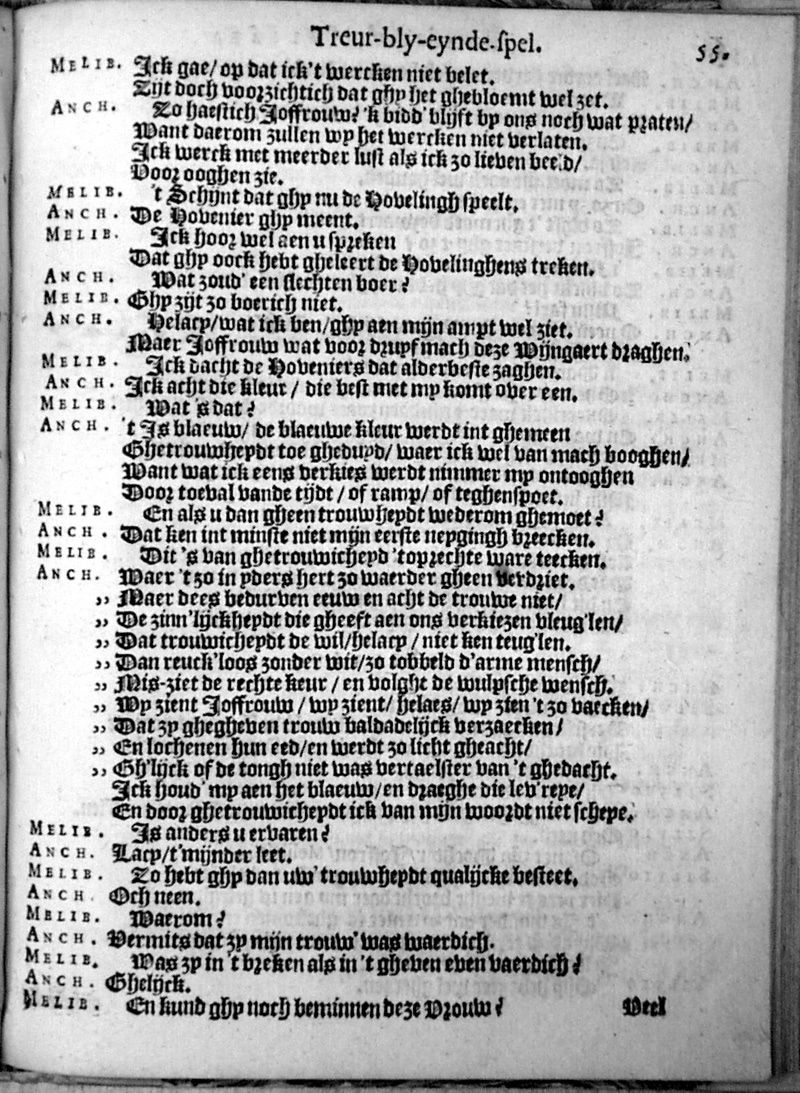 Treur-bly-eynde-spel. 55.
MELIB. Ick gae/ op dat ick't wercken niet belet.
Zijt doch voorzichtich dat ghy het ghebloemt wel zet.
ANCH. Zo haestich Joffrouw? 'k bidd' blijft by ons noch wat praten/
Want daerom zullen wy het wercken niet verlaten.
Ick werck met meerder lust als ick zo lieven beeld/
Voor ooghen zie.
MELIB. 't Schijnt dat ghy nu de Hovelingh speelt.
ANCH. De Hovenier ghy meent.
MELIB. Ick hoor wel aen u spreken
Dat ghy oock hebt gheleert de Hovelinghens treken.
ANCH. Wat zoud' een slechten boer?
MELIB. Ghy zijt zo boerich niet.
ANCH. Helacy/wat ick ben/ghy aen mijn ampt wel ziet.
Maer Joffrouw wat voor druyf mach deze Wijngaert draghen.
MELIB. Ick dacht de Hoveniers dat alderbeste zaghen.
ANCH. Ick acht die kleur/ die best met my komt over een.
MELIB. Wat 's dat?
ANCH. 't Is blaeuw/ de blaeuwe kleur werdt int ghemeen
Ghetrouwheydt toe gheduyd/ waer ick wel van mach booghen/
Want wat ick eens verkies werdt nimmer my ontooghen
Door toeval vande tijdt/ of ramp/ of teghenspoet.
MELIB. En als u dan gheen trouwheydt wederom ghemoet?
ANCH. Dat ken int minste niet mijn eerste neygingh breecken.
MELIB. Dit 's van ghetrouwicheyd 'toprechte ware teecken.
ANCH. Waer 't zo in yders hert zo waerder gheen verdriet.
,, Maer dees bedurven eeuw en acht de trouwe niet/
,, De zinn'lijckheydt die gheeft aen ons verkiezen vleug'len/
,, Dat trouwicheydt de wil/helacy/ niet ken teug'len.
,, Dan reuck'loos zonder wit/zo tobbeld d'arme mensch/
,, Mis-ziet de rechte keur/ en volght de wulpsche wensch.
,, Wy zient Joffrouw/ wy zient/ helaes/ wy zien 't zo vaecken/
,, Dat zy ghegheven trouw baldadelijck verzaecken/
,, En lochenen hun eed/en werdt zo licht gheacht/
,, Gh'lijck of de tongh niet was vertaelster van 't ghedacht.
Ick houd' my aen het blaeuw/en draeghe die lev'reye/
En door ghetrouwicheydt ick van mijn woordt niet scheye.
MELIB. Is anders u ervaren?
ANCH. Lacy/t'mijnder leet.
MELIB. Zo hebt ghy dan uw' trouwheydt qualijcke besteet.
ANCH. Och neen.
MELIB. Waerom?
ANCH. Vermits dat zy mijn trouw' was waerdich.
MELIB. Was zy in 't breken als in 't gheven even vaerdich?
ANCH. Ghelijck.
MELIB. En kund ghy noch beminnen deze Vrouw?
Veel